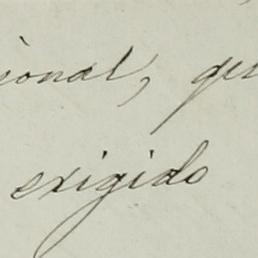 ional, que
exigido